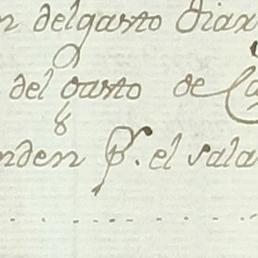 n del gasto diar
del gasto de Ca
nden p.r el sala